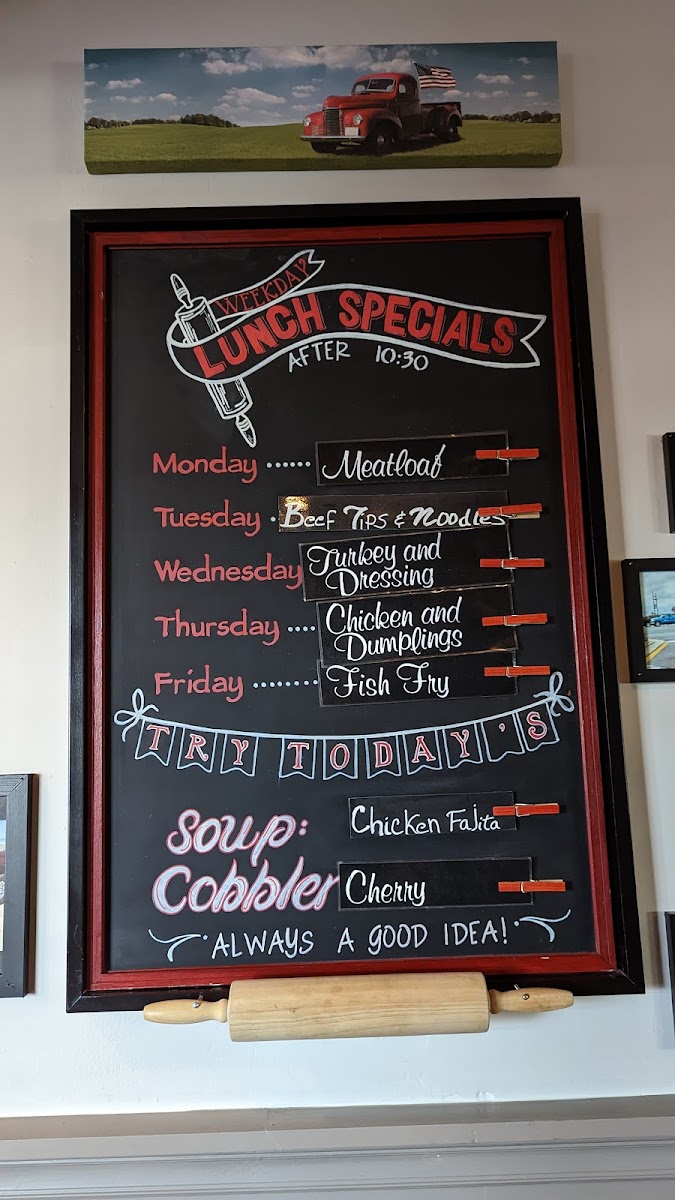 WEEKDAY
LUNCH SPECIALS
AFTER 10:30
Monday ...... Meatloaf
Tuesday . Beef Tips & Noodles
Wednesday Turkey and
Dressing
Thursday .... Chicken and
Dumplings
Friday ........ Fish Fry
TRY TODAY'S
Soup: Chicken Fajita
Cobbler Cherry
ALWAYS A GOOD IDEA!